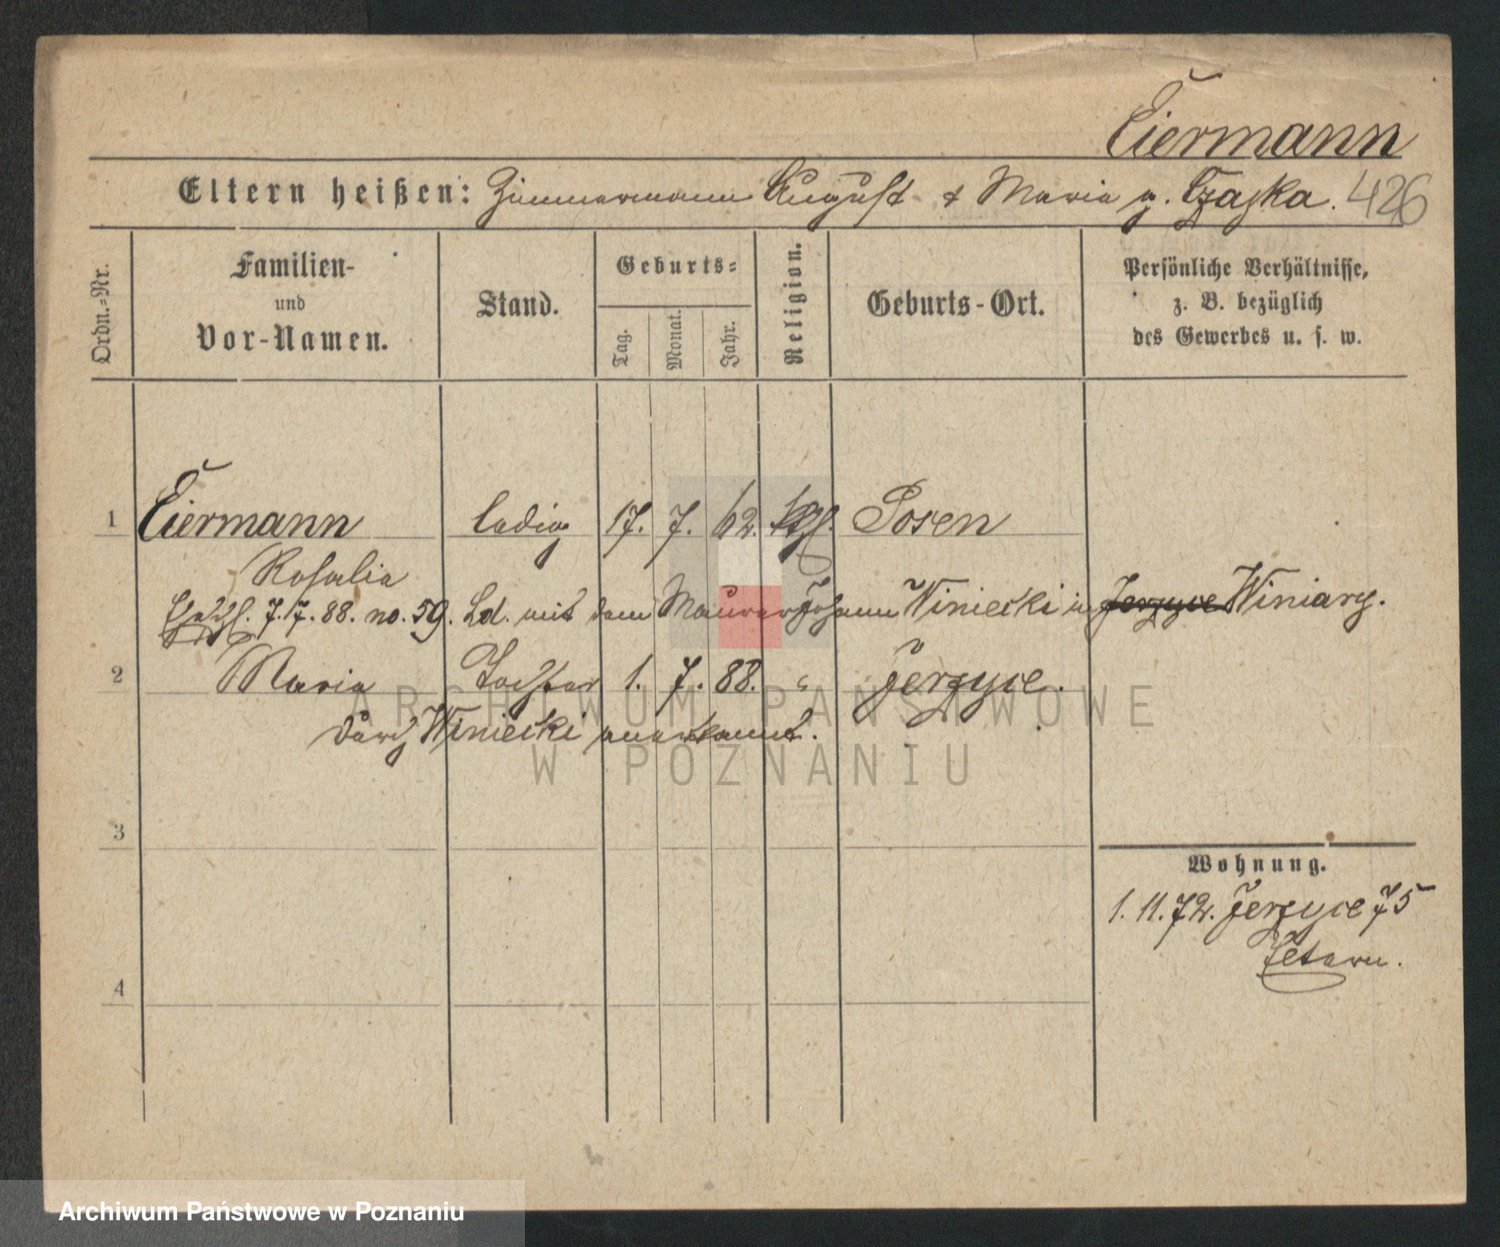 Eiermann
Eltern heißen: Zimmermann August & Maria g. Czajka. 426
Ordn.-Nr.
Familien-
und
Vor-Namen.
Stand.
Geburts-
Tag.
Monat.
Jahr.
Religion.
Geburts-Ort.
Persönliche Verhältnisse,
z. B. bezüglich
des Gewerbes u. s. w.
1 Eiermann ledig 17. 7. 62. kath. Posen
Rosalia
7.7.88. no. 59. Ld. mit dem Maurer Johann Winiecki in Jerzyce Winiary.
2 Maria Tochter 1. 7. 88. " Jerzyce.
durch Winiecki anerkannt.
3
Wohnung.
1.11.72. Jerzyce 75
4
ARCHIWUM PAŃSTWOWE
W POZNANIU
Archiwum Państwowe w Poznaniu